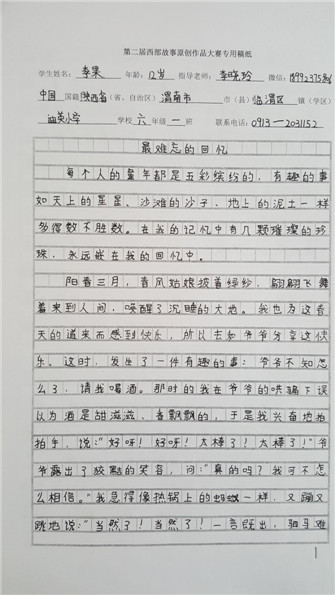 第二届西部故事原创作品大赛专用稿纸
学生姓名：李果 年龄：12岁 指导老师：李晓玲 微信：
中国 国籍 陕西省（省、自治区）渭南市 市（县）临渭区 镇（学区）
小学 学校 六 年级 一 班 联系电话：0913-2031152
最难忘的回忆
每个人的童年都是五彩缤纷的，有趣的事
如天上的星星、沙滩的沙子，地上的泥土一样
多得数不胜数。在我的记忆中有几颗璀璨的珍
珠，永远嵌在我的回忆中。
阳春三月，春风姑娘披着绿纱，翩翩飞舞
着来到人间，唤醒了沉睡的大地。我也为这春
天的道来而感到快乐，所以去和爷爷分享这快
乐。这时，发生了一件有趣的事：爷爷不知怎
么了，请我喝酒。那时的我在爷爷的哄骗下误
以为酒是甜滋滋、香飘飘的，于是我兴奋地拍
拍手，说：“好呀！好呀！太棒了！太棒了！”爷
爷露出了狡黠的笑容，问：“真的吗？我可不怎
么相信。”我急得像热锅上的蚂蚁一样，又蹦又
跳地说：“当然了！当然了！一言既出，驷马难
1